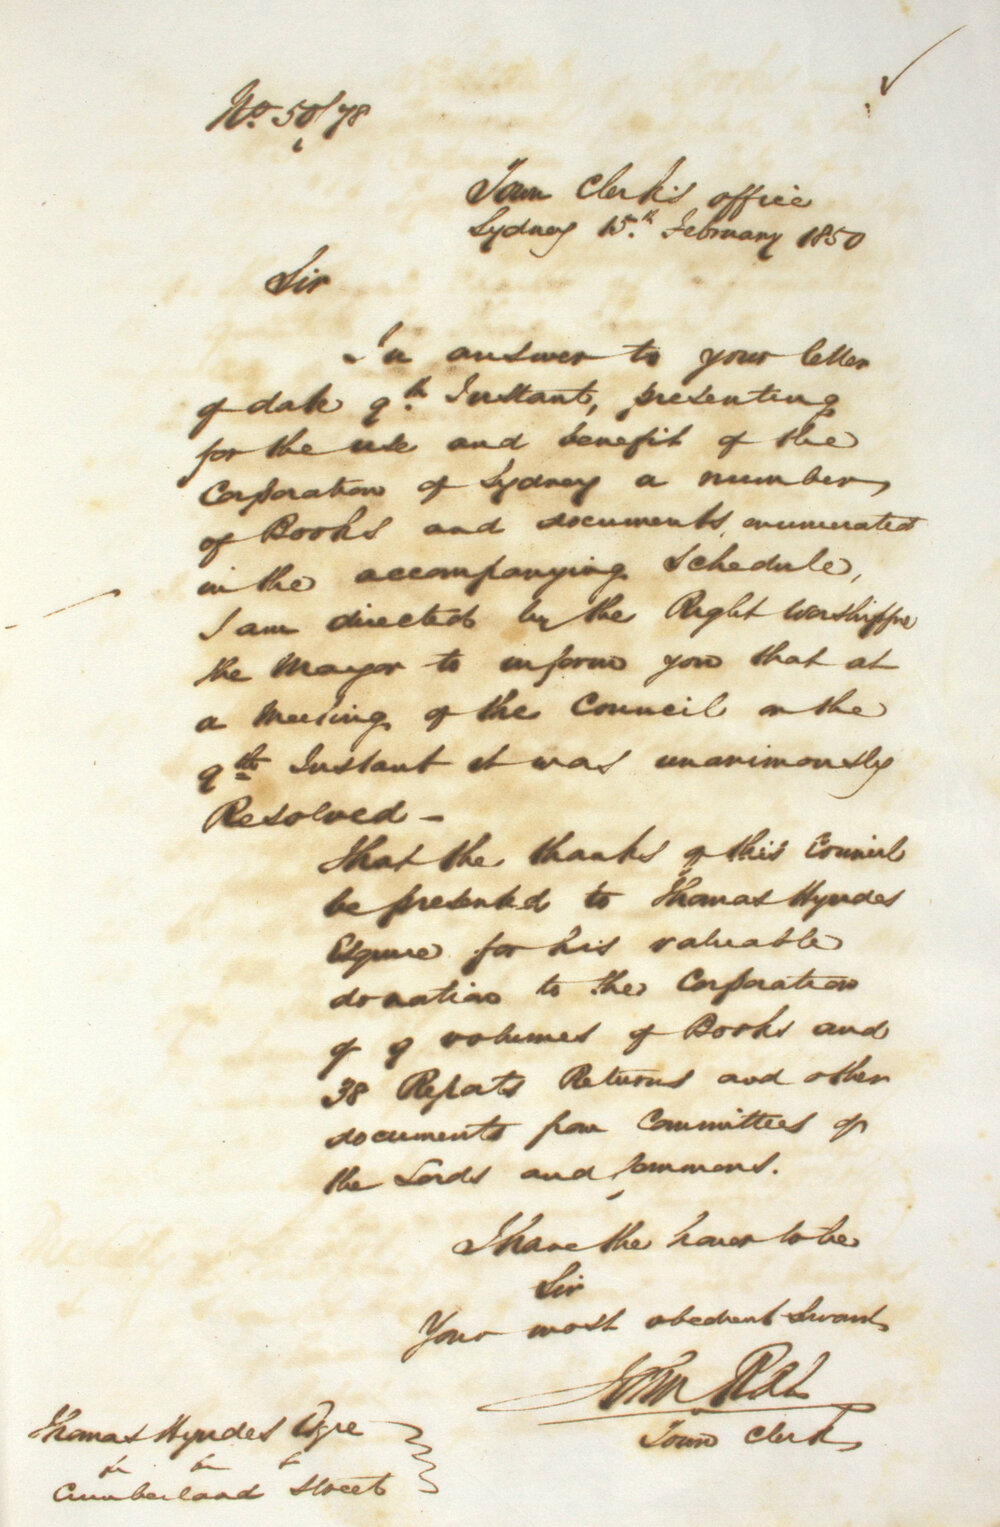 No. 50/78
Town Clerk's office
Sydney 15th February 1850
Sir
In answer to your letter
of date 9th Instant, presenting
for the use and benefit of the
Corporation of Sydney a number
of Books and documents, enumerated
in the accompanying Schedule,
I am directed by the Right Worshipful
the Mayor to inform you that at
a Meeting of the Council on the
9th Instant it was unanimously
Resolved –
That the thanks of this Council
be presented to Thomas Hyndes
Esquire for his valuable
donation to the Corporation
of 9 volumes of Books and
38 Reports Returns and other
documents from Committees of
the Lords and Commons.
I have the honor to be
Sir
Your most obedient Servant
John Rae
Town Clerk
Thomas Hyndes Esqre
Cumberland Street